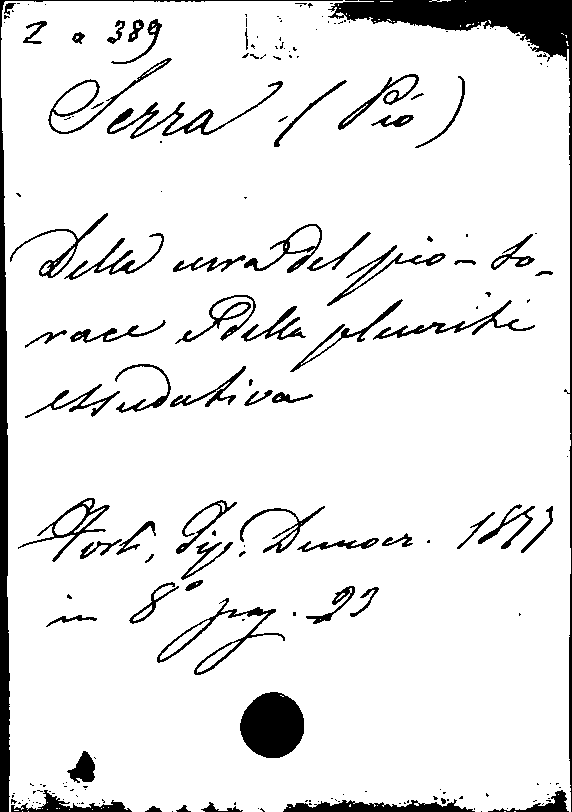 Z a 389
Serra (Pio)
Della cura del pio-to-
race e della pleurite
essudativa
Forlì, Tip. Democr. 1877
in 8° pag. 23